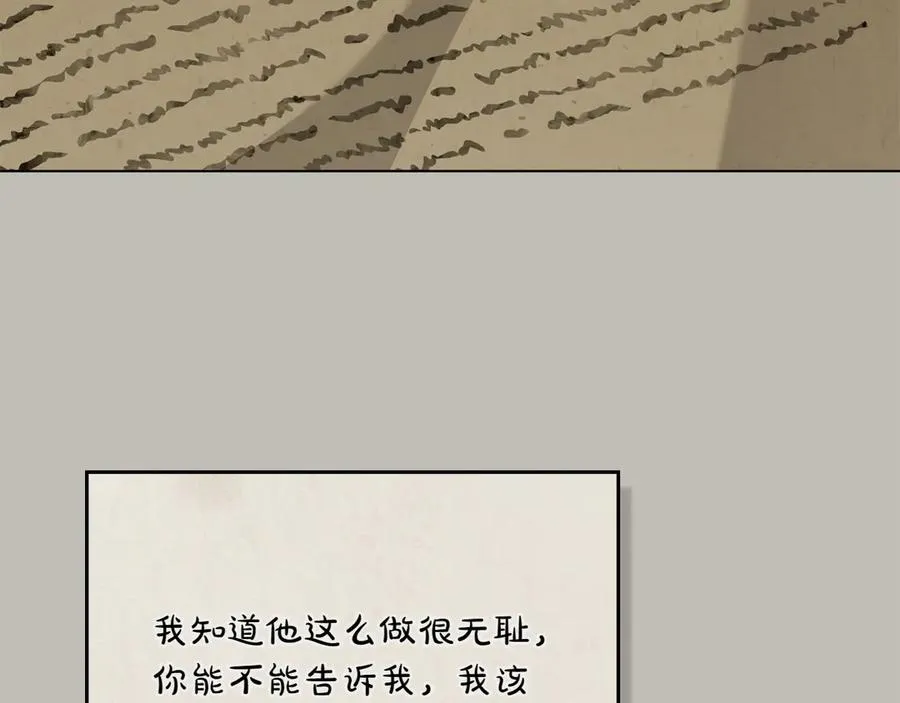 我知道他这么做很无耻，
你能不能告诉我，我该